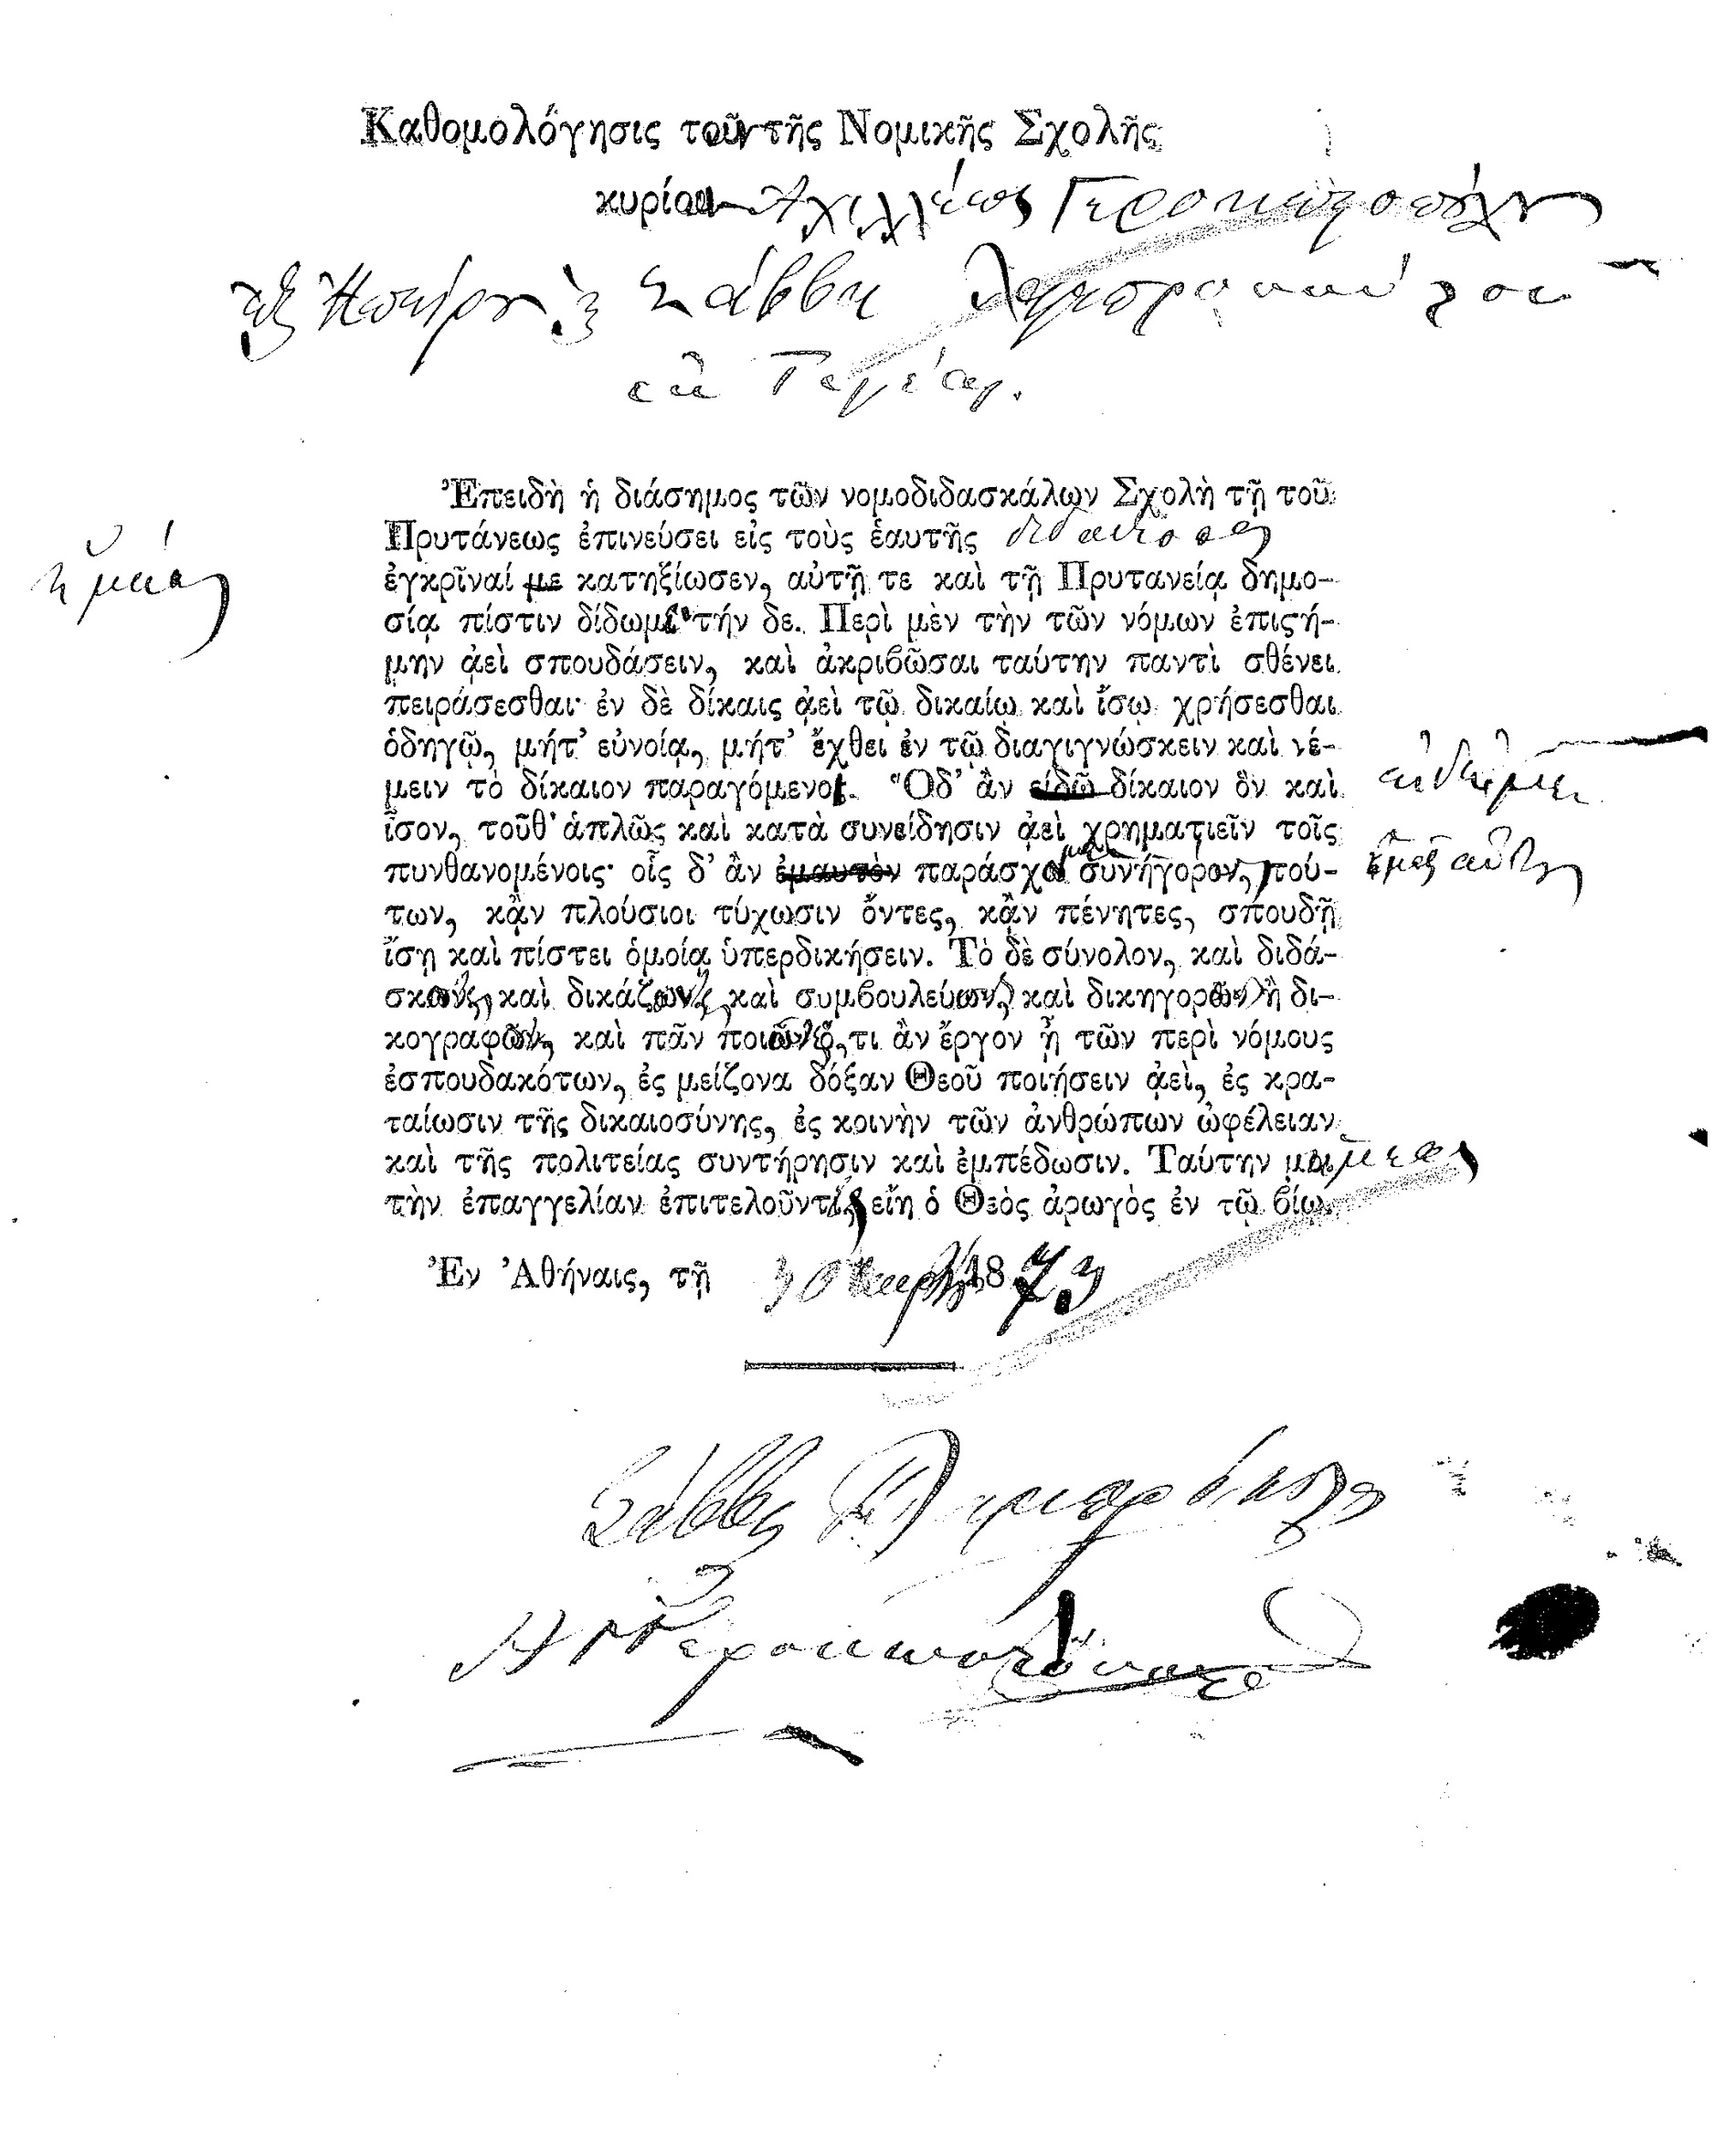 Καθομολόγησις τῶν τῆς Νομικῆς Σχολῆς
κυρίων Ἀχιλλέως Γεροκωστοπούλου
ἐξ Ἠπείρου & Σάββα Λαμπροπούλου
ἐκ Τεγέας.
Ἐπειδὴ ἡ διάσημος τῶν νομοδιδασκάλων Σχολὴ τῇ τοῦ
Πρυτάνεως ἐπινεύσει εἰς τοὺς ἑαυτῆς
ἡμᾶς
ἐγκρῖναί με κατηξίωσεν, αὐτῇ τε καὶ τῇ Πρυτανείᾳ δημο-
σίᾳ πίστιν δίδωμεν τήν δε. Περὶ μὲν τὴν τῶν νόμων ἐπιϛή-
μην ἀεὶ σπουδάσειν, καὶ ἀκριβῶσαι ταύτην παντὶ σθένει
πειράσεσθαι· ἐν δὲ δίκαις ἀεὶ τῷ δικαίῳ καὶ ἴσῳ χρήσεσθαι
ὁδηγῷ, μήτ' εὐνοίᾳ, μήτ' ἔχθει ἐν τῷ διαγιγνώσκειν καὶ νέ-
μειν τὸ δίκαιον παραγόμενοι. Ὅδ' ἂν εἰδῶ δίκαιον ὂν καὶ
εἰδῶμεν
ἶσον, τοῦθ' ἁπλῶς καὶ κατὰ συνείδησιν ἀεὶ χρηματιεῖν τοῖς
πυνθανομένοις· οἷς δ' ἂν ἐμαυτὸν παράσχωμεν συνήγορον, τού-
ἡμᾶς αὐτοὺς
των, κἂν πλούσιοι τύχωσιν ὄντες, κἂν πένητες, σπουδῇ
ἴσῃ καὶ πίστει ὁμοίᾳ ὑπερδικήσειν. Τὸ δὲ σύνολον, καὶ διδά-
σκοντες, καὶ δικάζοντες, καὶ συμβουλεύοντες, καὶ δικηγοροῦντες ἢ δι-
κογραφοῦντες, καὶ πᾶν ποιοῦντες ὅ,τι ἂν ἔργον ᾖ τῶν περὶ νόμους
ἐσπουδακότων, ἐς μείζονα δόξαν Θεοῦ ποιήσειν ἀεὶ, ἐς κρα-
ταίωσιν τῆς δικαιοσύνης, ἐς κοινὴν τῶν ἀνθρώπων ὠφέλειαν
καὶ τῆς πολιτείας συντήρησιν καὶ ἐμπέδωσιν. Ταύτην
τὴν ἐπαγγελίαν ἐπιτελοῦντι εἴη ὁ Θεὸς ἀρωγὸς ἐν τῷ βίῳ.
Ἐν Ἀθήναις, τῇ 30 1873
Σάββας Λαμπρόπουλος
Α Γεροκωστόπουλος